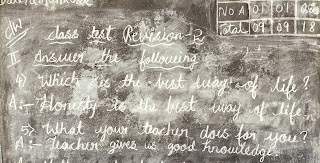 C/W
Class test Revision-2
N O A 01 01
Total 09 09 18
I Answer the following
4) Which is the best way of life?
A:- Honesty is the best way of life.
5) What your teacher does for you?
A:- Teacher gives us good knowledge.